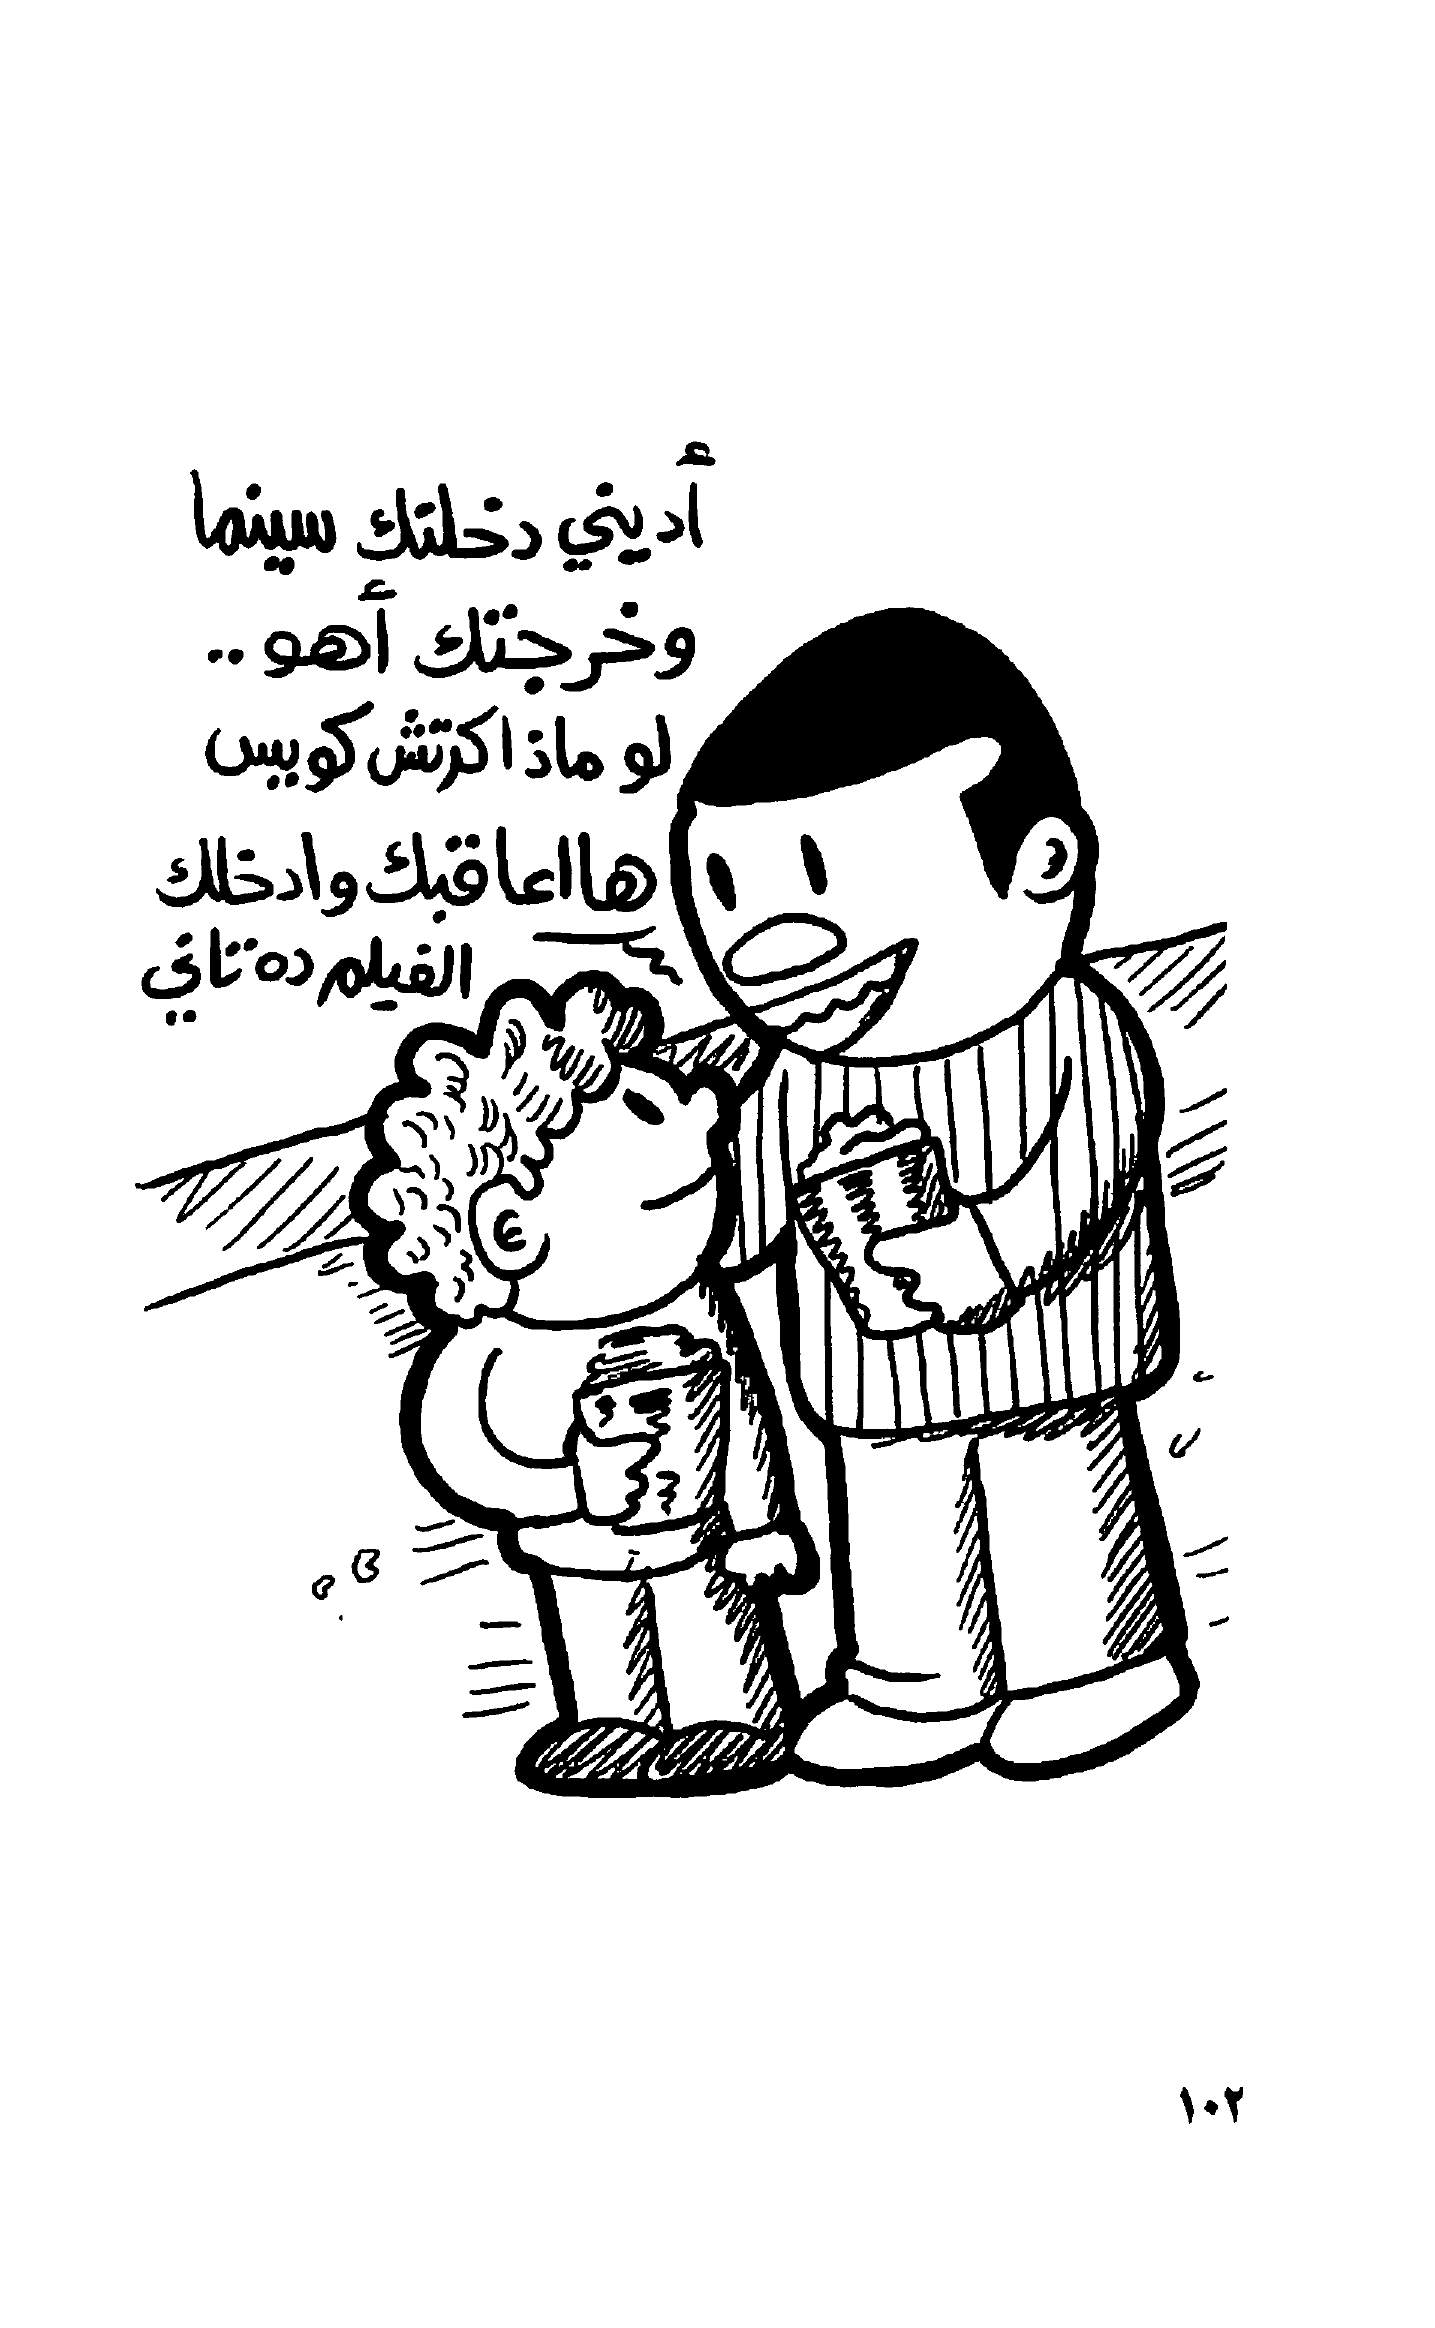 أديني دخلتك سينما
وخرجتك أهو ..
لو ماذاكرتش كويس
هااعاقبك وادخلك
الفيلم ده تاني
١٠٢